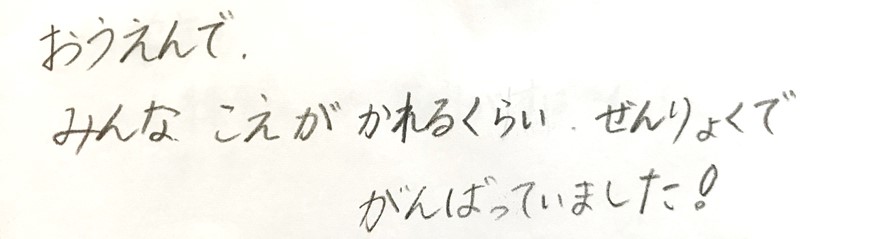 おうえんで、
みんな こえが かれるくらい、ぜんりょくで
がんばっていました！